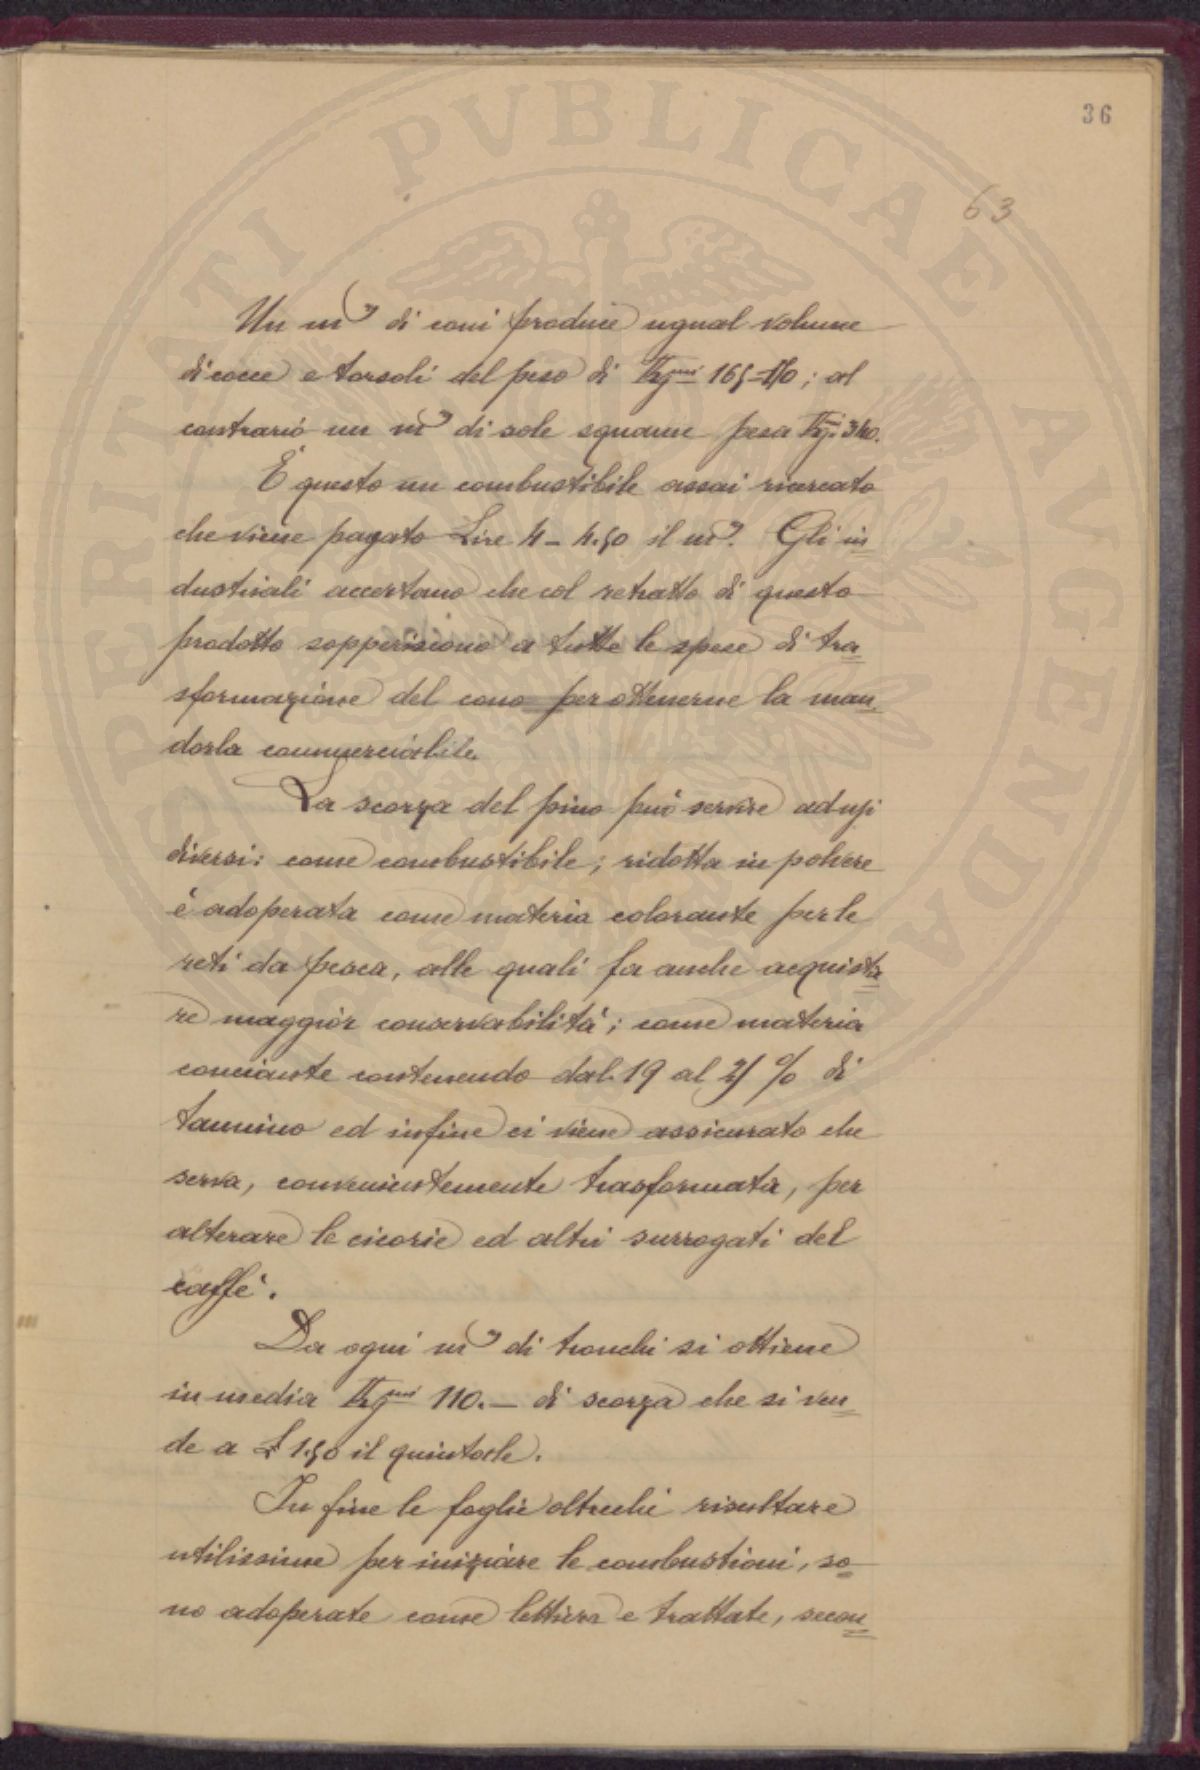 36
63
Un m³ di coni produce ugual volume
di cocce e torsoli del peso di Kg.mi 165=170; al
contrario un m³ di sole squame pesa Kg.mi 340.
È questo un combustibile assai ricercato
che viene pagato Lire 4 – 4.50 il m³. Gli in
dustriali accertano che col retratto di questo
prodotto sopperiscono a tutte le spese di tra
sformazione del cono per ottenerne la man
dorla commerciabile.
La scorza del pino può servire ad usi
diversi: come combustibile; ridotta in polvere
è adoperata come materia colorante per le
reti da pesca, alle quali fa anche acquista
re maggior conservabilità; come materia
conciante contenendo dal 19 al 21 % di
tannino ed infine ci viene assicurato che
serva, convenientemente trasformata, per
alterare le cicorie ed altri surrogati del
caffè.
Da ogni m³ di tronchi si ottiene
in media Kg.mi 110.— di scorza che si ven
de a £ 1.50 il quintale.
In fine le foglie oltrechè risultare
utilissime per iniziare le combustioni, so
no adoperate come lettiera e trattate, secon
PROSPERITATI PVBLICAE AVGENDAE